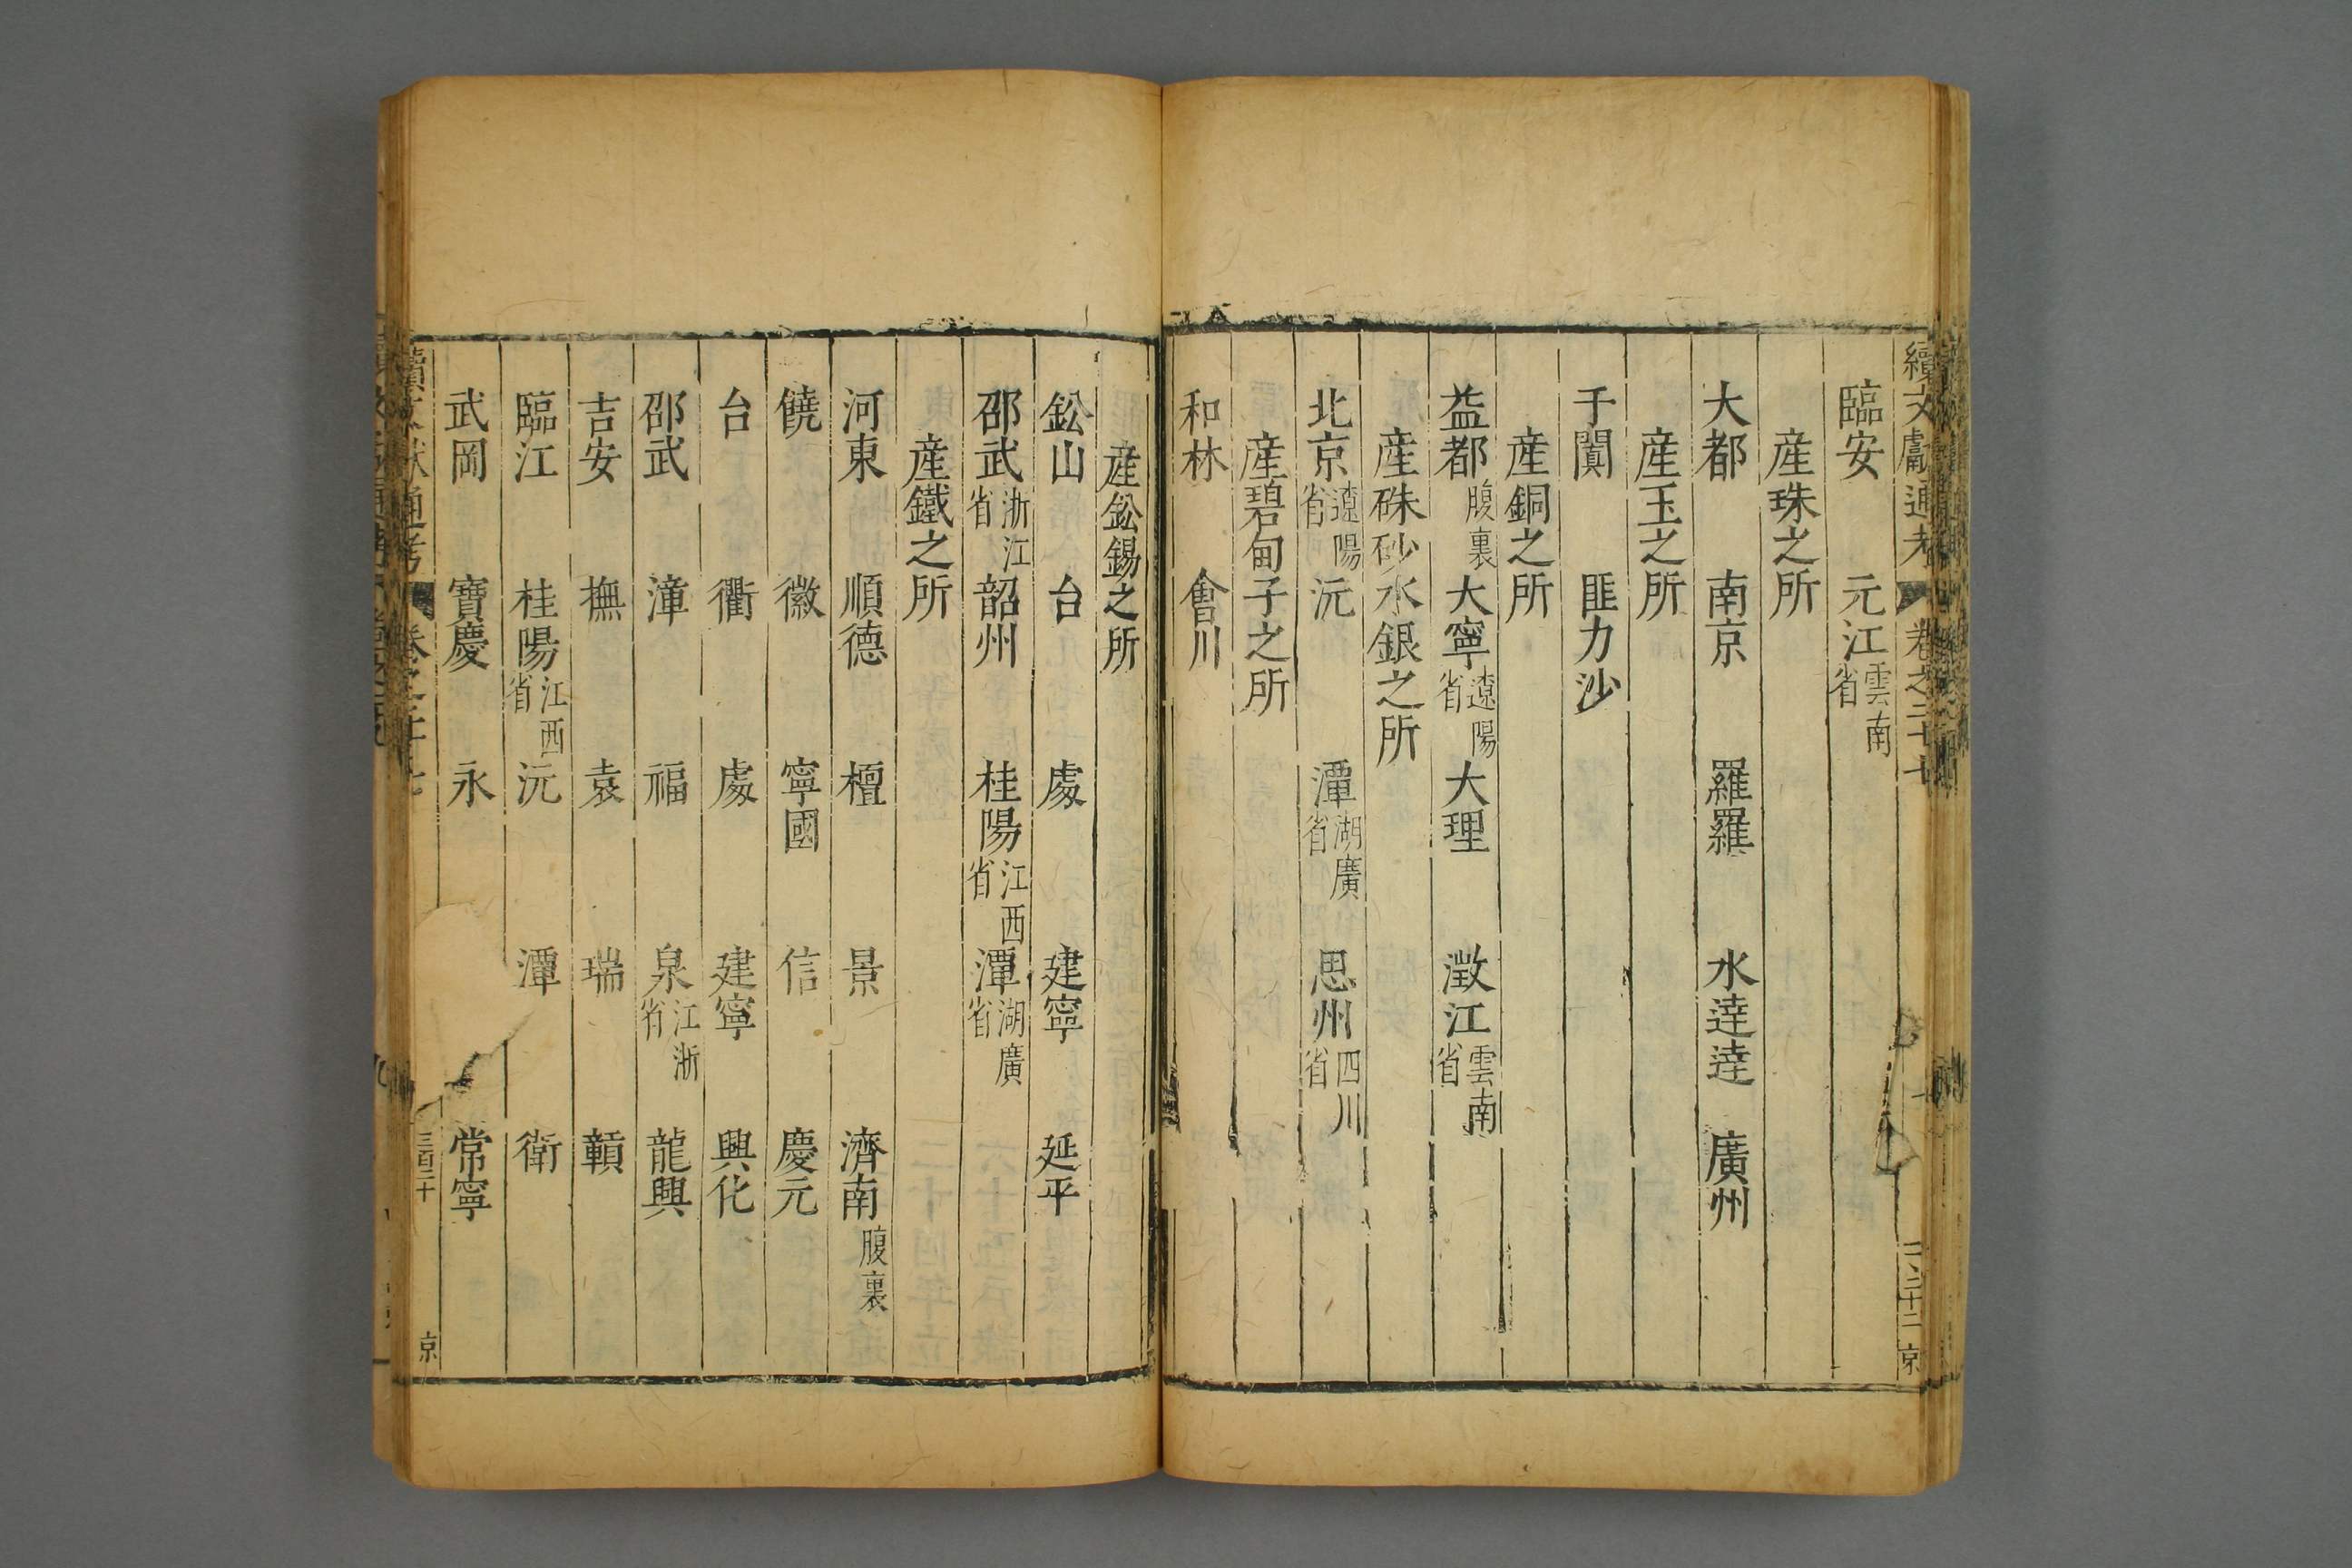 續文獻通考 卷之二十七 二十二 京
臨安 元江雲南省
產珠之所
大都 南京 羅羅 水達達 廣州
產玉之所
于闐 匪力沙
產銅之所
益都腹裏 大寧遼陽省 大理 澂江雲南省
產硃砂水銀之所
北京遼陽省 沅 潭湖廣省 思州四川省
產碧甸子之所
和林 會川
產鈆錫之所
鈆山 台 處 建寧 延平
邵武浙江省 韶州 桂陽江西省 潭湖廣省
產鐵之所
河東 順德 檀 景 濟南腹裏
饒 徽 寧國 信 慶元
台 衢 處 建寧 興化
邵武 漳 福 泉江浙省 龍興
吉安 撫 袁 瑞 贑
臨江 桂陽江西省 沅 潭 衛
武岡 寶慶 永 常寧
續文獻通考 卷之二十七 三百二十 京